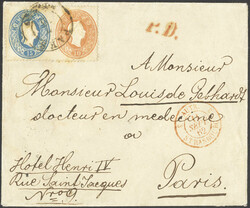 P.D.
A Monsieur
Monsieur Louis de Gebhardt
docteur en medecine
Hotel Henri IV
Rue Saint Jacques
Paris.